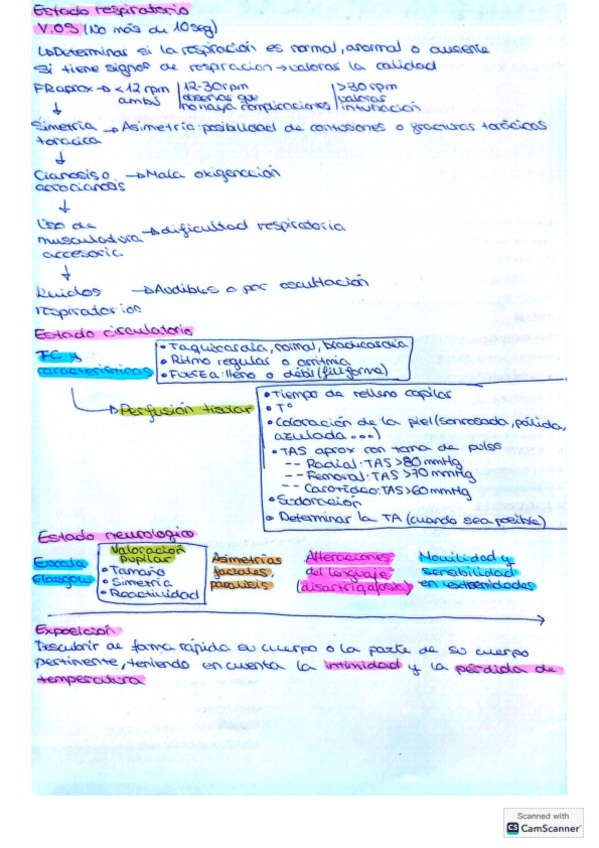 Estado respiratorio
V.OS (No más de 10seg)
↳Determinar si la respiración es normal, anormal o ausente
Si tiene signos de respiracion → valoras la calidad
FR aprox → < 12 rpm | 12-30rpm | >30 rpm
ambú | observas que no haya complicaciones | valoras intubación
Simetría → Asimetría: posibilidad de contusiones o fracturas torácicas
toracica
Cianosis o → Mala oxigención
acrocianosis
Uso de
musculadura → dificultad respiratoria
accesoria
Ruidos → Audibles o por ascultación
respiratorios
Estado circulatorio
FC y
características
• Taquicardia, normal, bradicardia
• Ritmo regular o arritmia
• FUERZA: lleno o débil (filiforme)
Perfusión tisular
• Tiempo de relleno capilar
• Tº
• Coloración de la piel (sonrosada, pálida,
azulada...)
• TAS aprox con toma de pulso
-- Radial: TAS >80 mmHg
-- Femoral: TAS >70 mmHg
-- Carotídeo: TAS >60 mmHg
• Sudoración
• Determinar la TA (cuando sea posible)
Estado neurologico
Escala
Glasgow
Valoración
pupilar
• Tamaño
• Simetría
• Reactividad
Asimetrías
faciales,
paralisis
Alteraciones
del lenguaje
Movilidad y
sensibilidad
en extremidades
Exposición
Descubrir de forma rápida su cuerpo o la parte de su cuerpo
pertinente, teniendo en cuenta la intimidad y la pérdida de
temperatura
Scanned with
CS CamScanner